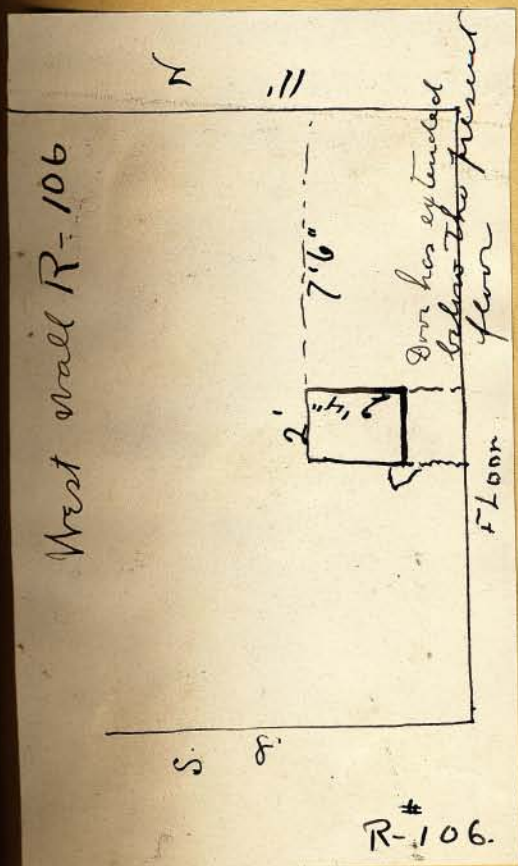 West wall R-106
N
S.
2'
7'6"
Door has extended
below the present
floor
Floor
R-#106.